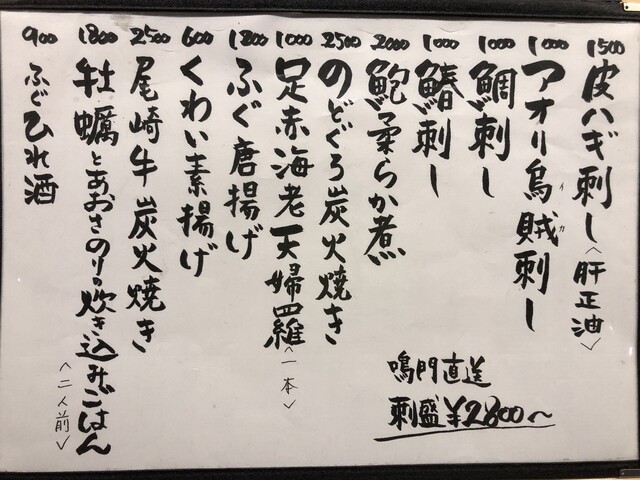 1500 皮ハギ刺し〈肝正油〉
1000 アオリ烏賊刺し
1000 鯛刺し
1000 鰆刺し
2000 鮑柔らか煮
2500 のどぐろ炭火焼き
1000 足赤海老天婦羅〈一本〉
1200 ふぐ唐揚げ
600 くわい素揚げ
2500 尾崎牛炭火焼き
1800 牡蠣とあおさのりの炊き込みごはん〈二人前〉
900 ふぐひれ酒
鳴門直送
刺盛¥2800〜